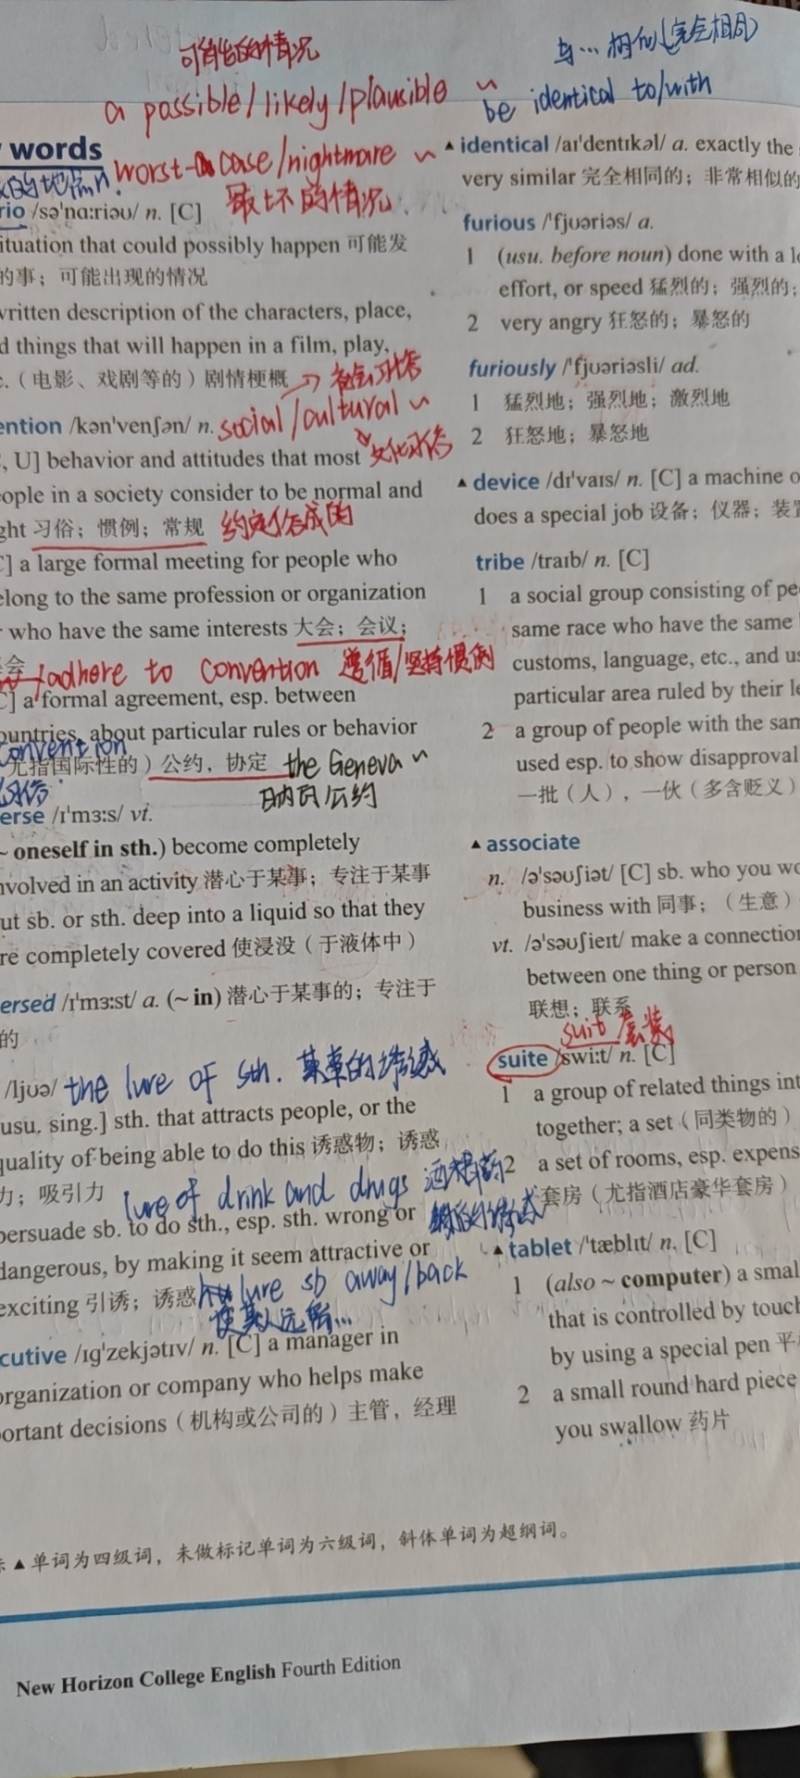 可能的情况
a possible/likely/plausible ~
words
worst-case/nightmare ~
最坏的情况
rio /səˈnɑːriəʊ/ n. [C]
ituation that could possibly happen 可能发
的事；可能出现的情况
written description of the characters, place,
d things that will happen in a film, play,
c.（电影、戏剧等的）剧情梗概
社会习俗
ention /kənˈvenʃən/ n.
social/cultural ~
, U] behavior and attitudes that most
文化习俗
ople in a society consider to be normal and
ght 习俗；惯例；常规
约定俗成的
C] a large formal meeting for people who
elong to the same profession or organization
who have the same interests 大会；会议；
会
/adhere to convention 遵循/坚持惯例
C] a formal agreement, esp. between
ountries, about particular rules or behavior
convention
尤指国际性的）公约，协定
the Geneva ~
日内瓦公约
erse /ɪˈmɜːs/ vt.
~ oneself in sth.) become completely
nvolved in an activity 潜心于某事；专注于某事
ut sb. or sth. deep into a liquid so that they
re completely covered 使浸没（于液体中）
ersed /ɪˈmɜːst/ a. (~ in) 潜心于某事的；专注于
的
/ljʊə/
the lure of sth. 某事的诱惑
usu. sing.] sth. that attracts people, or the
quality of being able to do this 诱惑物；诱惑
力；吸引力
lure of drink and drugs
persuade sb. to do sth., esp. sth. wrong or
dangerous, by making it seem attractive or
exciting 引诱；诱惑
lure sb away/back
使某人远离…
cutive /ɪɡˈzekjətɪv/ n. [C] a manager in
organization or company who helps make
ortant decisions（机构或公司的）主管，经理
与…相似(完全相同)
be identical to/with
▲ identical /aɪˈdentɪkəl/ a. exactly the
very similar 完全相同的；非常相似的
furious /ˈfjʊəriəs/ a.
1 (usu. before noun) done with a l
effort, or speed 猛烈的；强烈的；
2 very angry 狂怒的；暴怒的
furiously /ˈfjʊəriəsli/ ad.
1 猛烈地；强烈地；激烈地
2 狂怒地；暴怒地
▲ device /dɪˈvaɪs/ n. [C] a machine o
does a special job 设备；仪器；装置
tribe /traɪb/ n. [C]
1 a social group consisting of pe
same race who have the same
customs, language, etc., and us
particular area ruled by their le
2 a group of people with the sam
used esp. to show disapproval
一批（人），一伙（多含贬义）
▲ associate
n. /əˈsəʊʃiət/ [C] sb. who you wo
business with 同事；（生意）
vt. /əˈsəʊʃieɪt/ make a connection
between one thing or person
联想；联系
suit 套装
suite /swiːt/ n. [C]
1 a group of related things int
together; a set（同类物的）
2 a set of rooms, esp. expens
套房（尤指酒店豪华套房）
▲ tablet /ˈtæblɪt/ n. [C]
1 (also ~ computer) a smal
that is controlled by touch
by using a special pen 平
2 a small round hard piece
you swallow 药片
▲ 单词为四级词，未做标记单词为六级词，斜体单词为超纲词。
New Horizon College English Fourth Edition